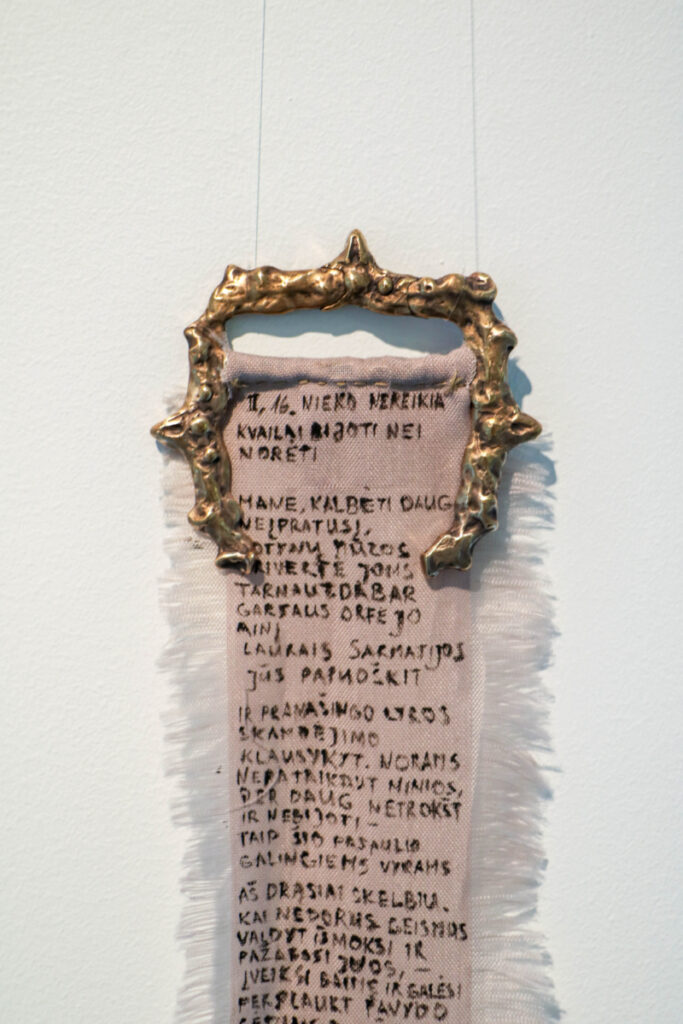 II, 16. NIEKO NEREIKIA
KVAILAI BIJOTI NEI
NORĖTI
MANE, KALBĖTI DAUG
NEĮPRATUSĮ,
LOTYNŲ MŪZOS
PRIVERTĖ JOMS
TARNAUT. DABAR
GARSAUS ORFĖJO
AINĮ
LAURAIS SARMATIJOS
JŪS PAPUOŠKIT
IR PRANAŠINGO LYROS
SKAMBĖJIMO
KLAUSYKYT. NORAMS
NEPATAIKAUT MINIOS,
PER DAUG NETROKŠT
IR NEBIJOTI –
TAIP ŠIO PASAULIO
GALINGIEMS VYRAMS
AŠ DRĄSIAI SKELBIU.
KAI NEDORUS GEISMUS
VALDYT IŠMOKSI IR
PAŽABOSI JUOS, –
ĮVEIKSI BAIMĘ IR GALĖSI
PERPLAUKT PAVYDO